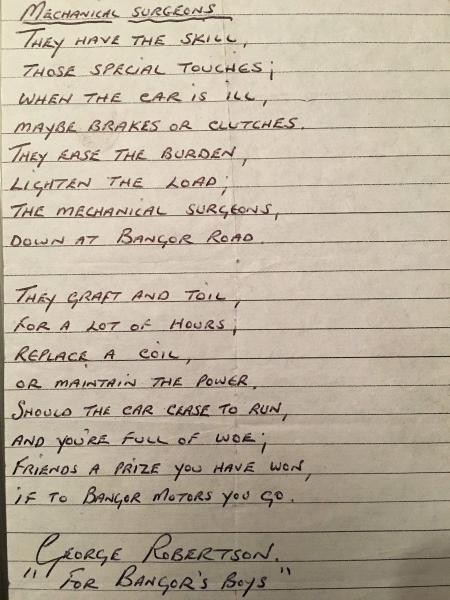 MECHANICAL SURGEONS
THEY HAVE THE SKILL,
THOSE SPECIAL TOUCHES;
WHEN THE CAR IS ILL,
MAYBE BRAKES OR CLUTCHES.
THEY EASE THE BURDEN,
LIGHTEN THE LOAD;
THE MECHANICAL SURGEONS,
DOWN AT BANGOR ROAD.
THEY GRAFT AND TOIL,
FOR A LOT OF HOURS;
REPLACE A COIL,
OR MAINTAIN THE POWER.
SHOULD THE CAR CEASE TO RUN,
AND YOU'RE FULL OF WOE;
FRIENDS A PRIZE YOU HAVE WON,
IF TO BANGOR MOTORS YOU GO.
GEORGE ROBERTSON.
"FOR BANGOR'S BOYS"